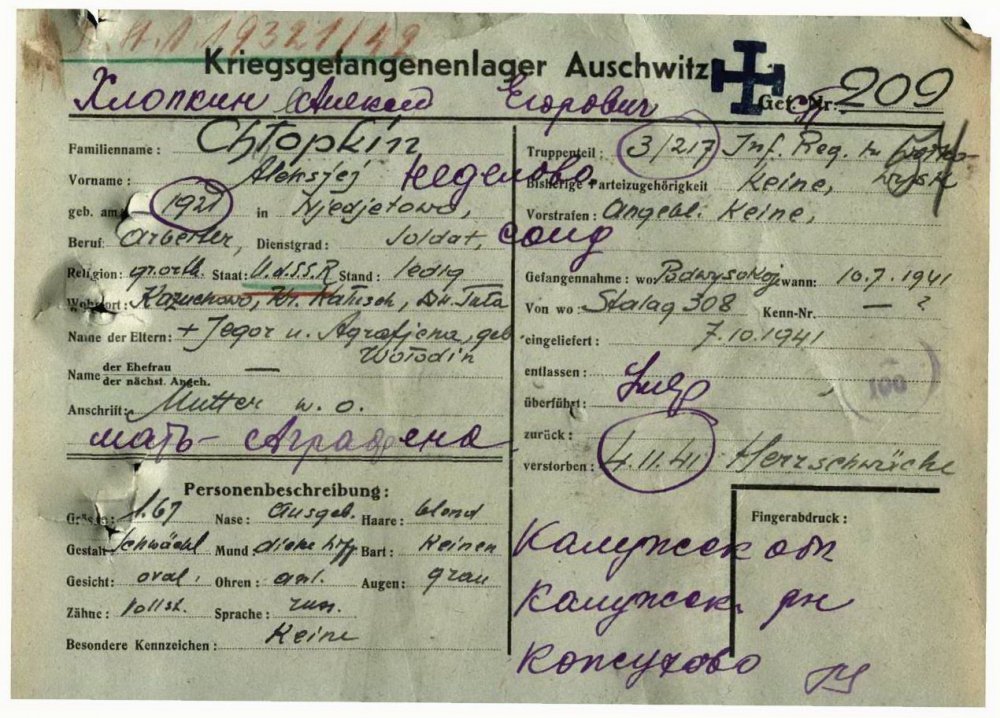 19321/42
Kriegsgefangenenlager Auschwitz
Хлопкин Алексей Егорович
Gef. Nr. 209
Familienname: Chłopkin
Vorname: Aleksjej Неделово
geb. am 1921 in Njedjetowo,
Beruf: Arbeiter, Dienstgrad: Soldat, солд
Religion: gr. orth. Staat: U.d.SS.R Stand: ledig
Wohnort: Kr.
Name der Eltern: + Jegor u. Agrafjena, geb
Wołodin
Name der Ehefrau —
der nächst. Angeh.
Anschrift: Mutter w. o.
мать- Аграфена
Personenbeschreibung:
Grösse: 1.67 Nase: ausgeb. Haare: blond
Gestalt: schwächl Mund: dicke Bart: Keinen
Gesicht: oval. Ohren: anl. Augen: grau
Zähne: vollst. Sprache: russ.
Besondere Kennzeichen: Keine
Truppenteil: 3/217 Inf. Reg.
Bisherige Parteizugehörigkeit Keine,
Vorstrafen: angebl. Keine,
Gefangennahme: wo: Podwysokoj wann: 10.7.1941
Von wo: Stalag 308 Kenn-Nr. — ?
eingeliefert: 7.10.1941
entlassen:
100
überführt:
zurück:
verstorben: 4.11.41 Herzschwäche
Fingerabdruck:
Калужск обл
Калужск. рн
Кожухово